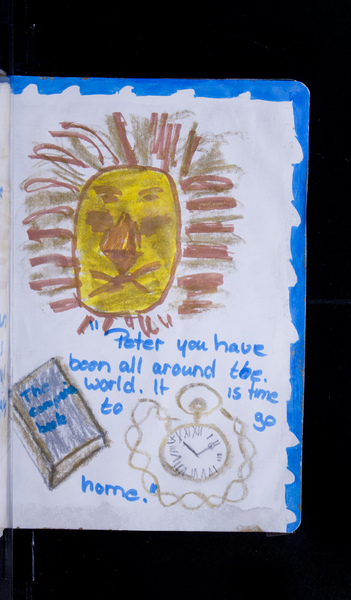 "Peter you have
been all around the.
world. It is time
to go
home."
The
book